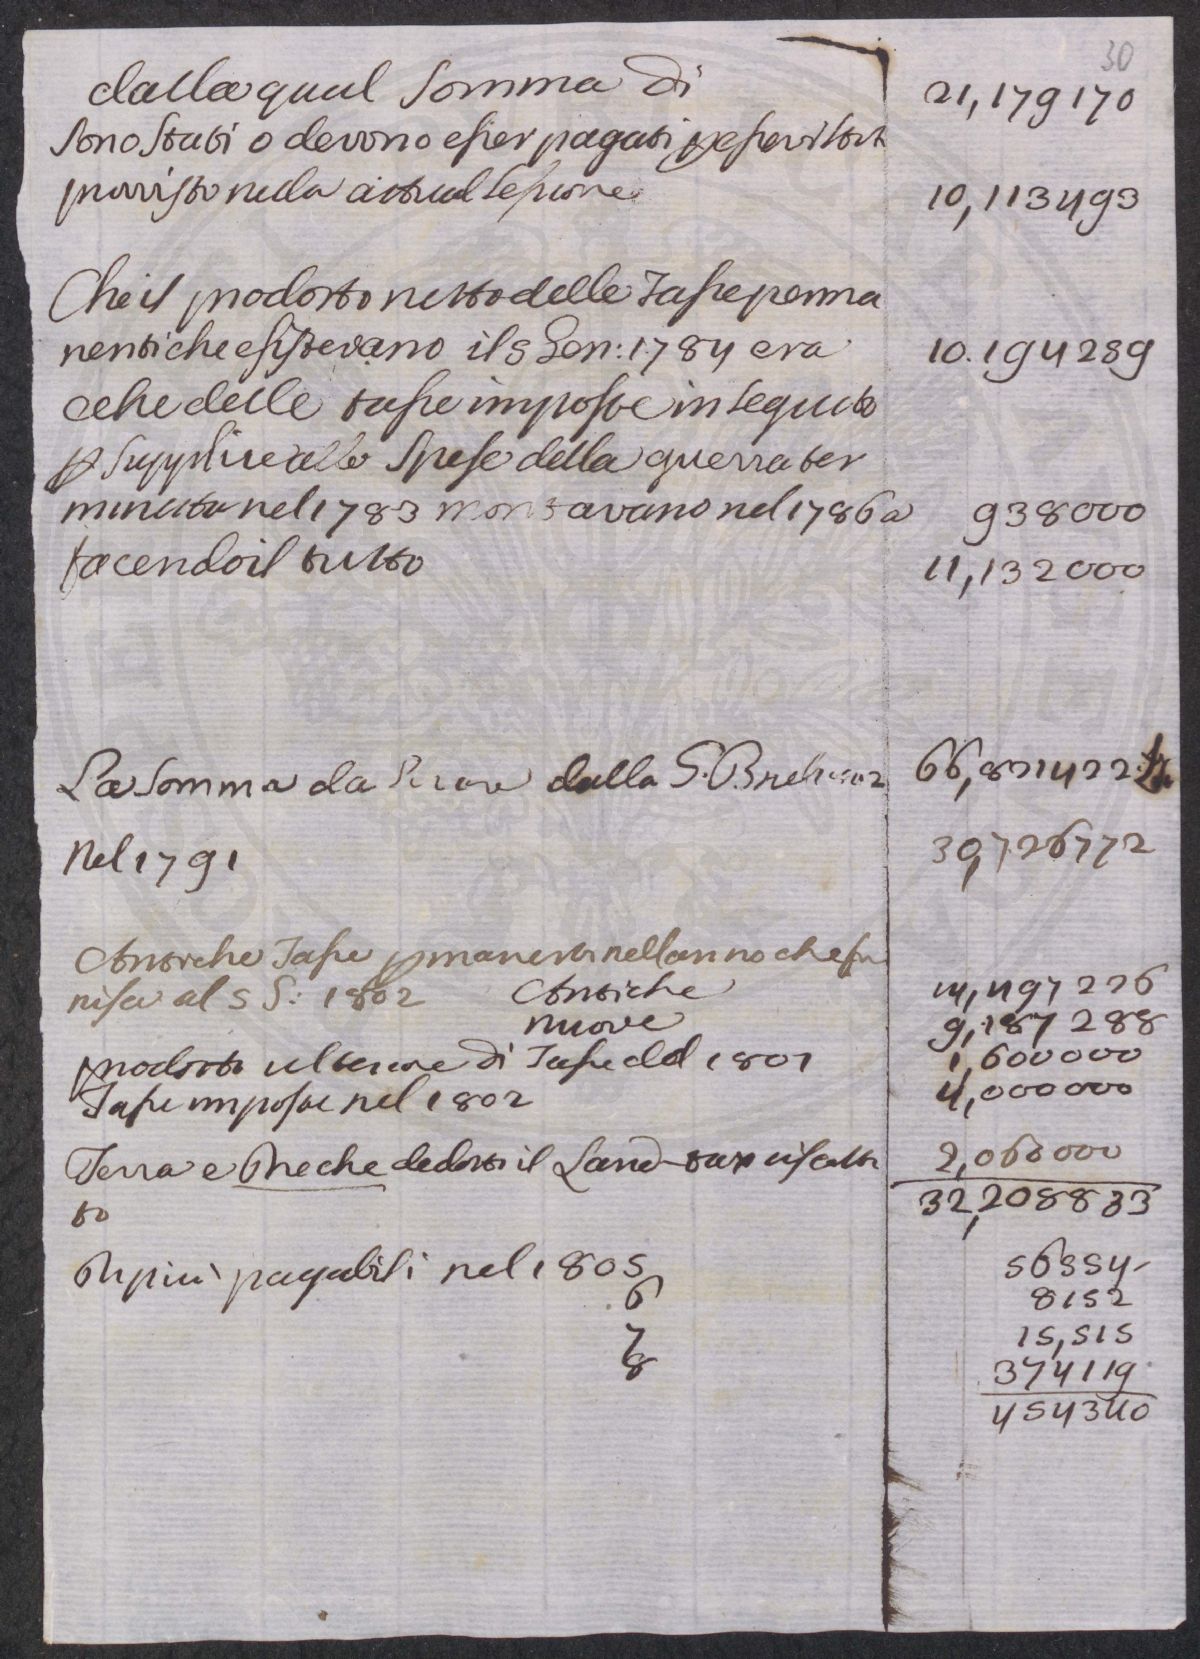 30
dalla qual Somma di 21,179170
Sono Stati o devono esser pagati p esservi stato
provvisto nella attual Sessione 10,113493
Che il prodotto netto delle Tasse perma
nenti che esistevano il 5 Gen: 1784 era 10.194259
e che delle tasse imposte in seguito
p supplire alle Spese della guerra ter
minata nel 1783 montavano nel 1786 a 938000
facendo il tutto 11,132000
La Somma da dalla G. B nel 1802 66,821422
Nel 1791 30,726772
Antiche Tasse pmanenti nell anno che fi
nisce al 5 G: 1802 Antiche 14,497276
nuove 9,187288
prodotto ulteriore di Tasse del 1801 1,600000
Tasse imposte nel 1802 4,000000
Terra e dedotto il Land-tax riscatta
to 2,060000
32,208833
pagabili nel 1805 56554
6 8152
7 15,515
8 374119
454340